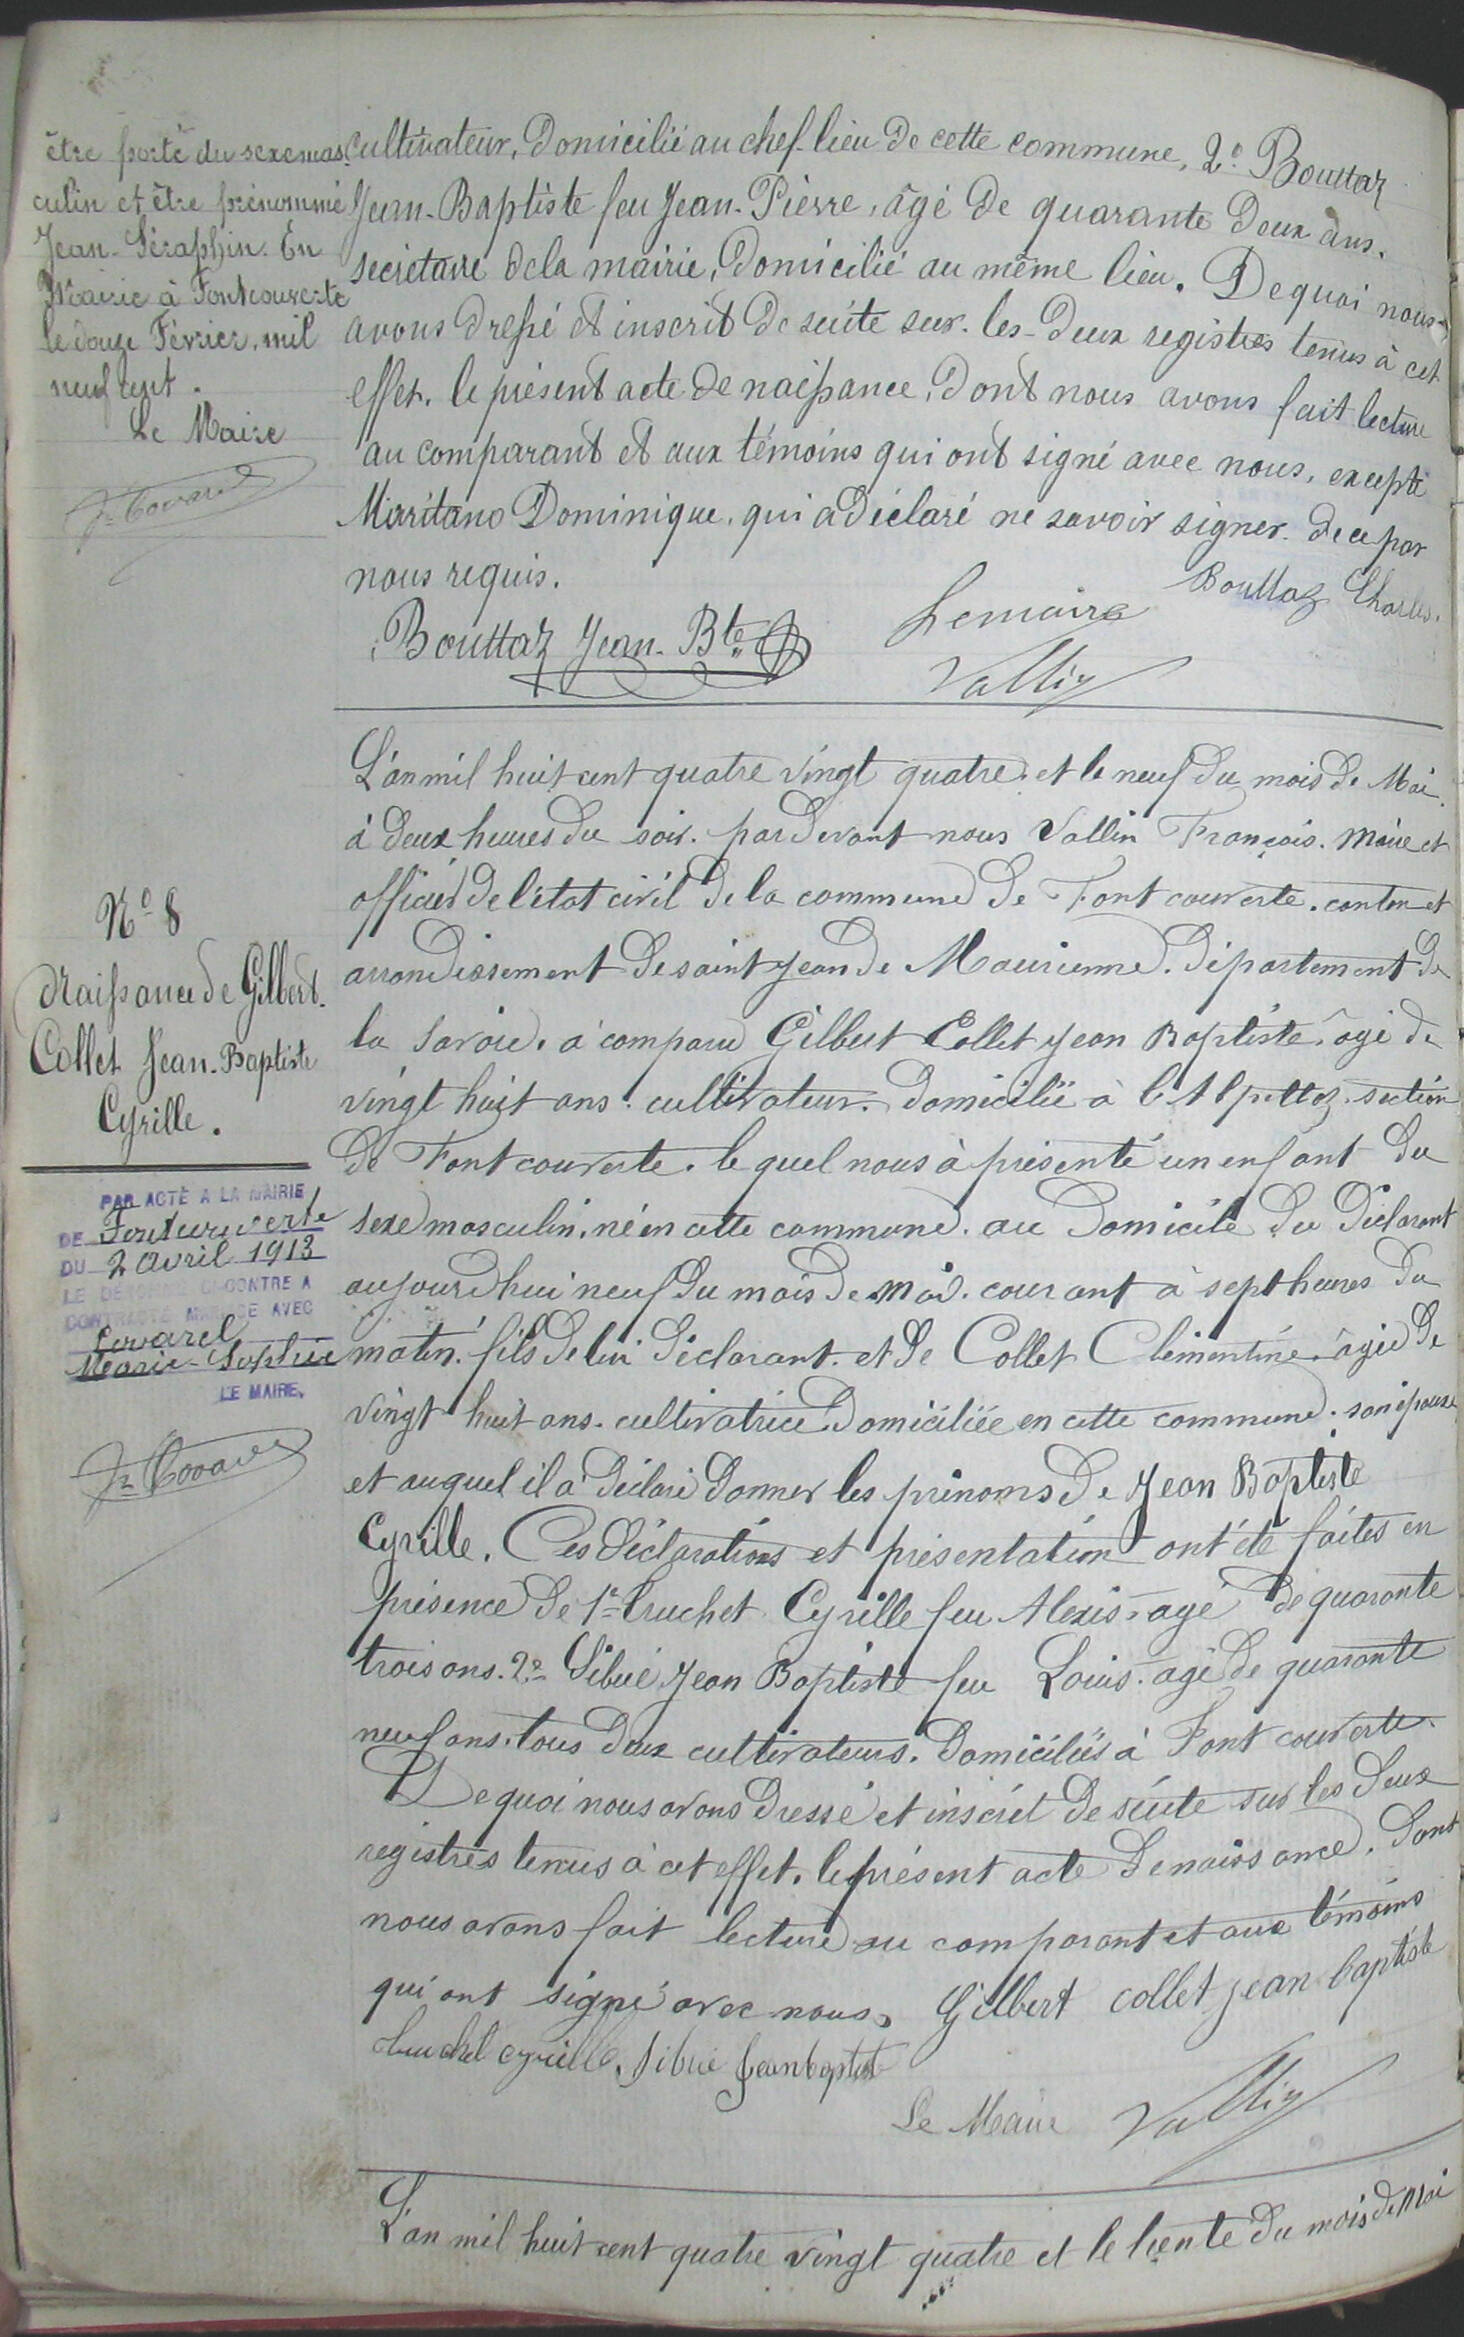 être porté du sexe mas-
culin et être prénommé
Jean-Séraphin. En
Mairie à Fontcouverte
le douze Février, mil
neuf cent.
Le Maire
cultivateur, Domicilié au chef-lieu de cette commune, 2° Bouttaz
Jean-Baptiste feu Jean-Pierre, âgé de quarante deux ans,
secrétaire de la mairie, Domicilié au même lieu. De quoi nous
avons dressé et inscrit de suite sur les deux registres tenus à cet
effet, le présent acte de naissance, Dont nous avons fait lecture
au comparant et aux témoins qui ont signé avec nous, excepté
Maritano Dominique, qui a déclaré ne savoir signer de ce par
nous requis.
Bouttaz Charles.
Bouttaz Jean-Bte
Le maire
Vallin
N° 8
Naissance de Gilbert-
Collet Jean-Baptiste
Cyrille.
PAR ACTE A LA MAIRIE
DE Fontcouverte
DU 2 avril 1913
LE DÉNOMMÉ CI-CONTRE A
CONTRACTÉ MARIAGE AVEC
Covarel
Marie-Sophie
LE MAIRE,
L'an mil huit cent quatre vingt quatre, et le neuf du mois de Mai.
à deux heures du soir. par devant nous Vallin François. Maire et
officier de l'état civil de la commune de Fontcouverte. canton et
arrondissement de saint Jean de Maurienne. département de
la Savoie. a comparu Gilbert Collet Jean Baptiste, âgé de
vingt huit ans. cultivateur. domicilié à l'Alpettaz. section
de Fontcouverte. lequel nous à présenté un enfant du
sexe masculin, né en cette commune. au domicile du déclarant
aujourd'hui neuf du mois de mai. courant à sept heures du
matin. fils de lui déclarant. et de Collet Clémentine. âgée de
vingt huit ans. cultivatrice domiciliée en cette commune. son épouse
et auquel il a déclaré donner les prénoms de Jean Baptiste
Cyrille. Ces déclarations et présentation ont été faites en
présence de 1° Truchet Cyrille feu Alexis, agé de quarante
trois ans. 2° Sibué Jean Baptiste feu Louis. agé de quarante
neuf ans. tous deux cultivateurs. domiciliés à Fontcouverte.
De quoi nous avons dressé et inscrit de suite sur les deux
registres tenus à cet effet. le présent acte de naissance. dont
nous avons fait lecture au comparant et aux témoins
qui ont signé avec nous, Gilbert collet jean baptiste
truchet cyrille, sibué Jean baptiste
Le Maire Vallin
L'an mil huit cent quatre vingt quatre et le trente du mois de Mai